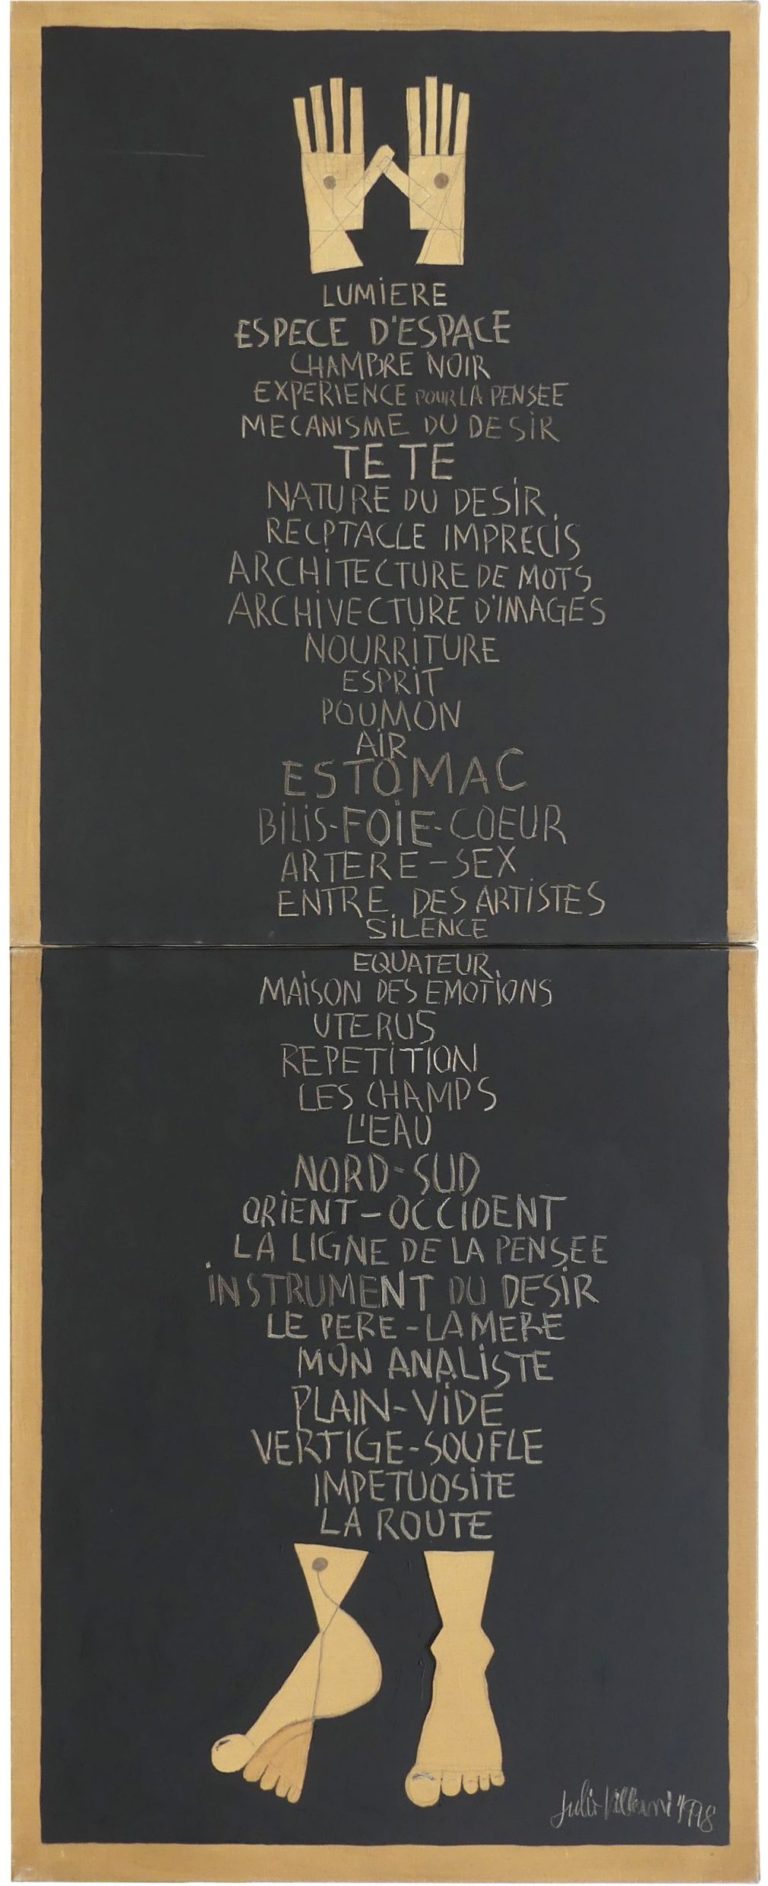 LUMIERE
ESPECE D'ESPACE
CHAMBRE NOIR
EXPERIENCE POUR LA PENSEE
MECANISME DU DESIR
TETE
NATURE DU DESIR
RECPTACLE IMPRECIS
ARCHITECTURE DE MOTS
ARCHIVECTURE D'IMAGES
NOURRITURE
ESPRIT
POUMON
AIR
ESTOMAC
BILIS-FOIE-COEUR
ARTERE-SEX
ENTRE DES ARTISTES
SILENCE
EQUATEUR
MAISON DES EMOTIONS
UTERUS
REPETITION
LES CHAMPS
L'EAU
NORD-SUD
ORIENT-OCCIDENT
LA LIGNE DE LA PENSEE
INSTRUMENT DU DESIR
LE PERE-LA MERE
MON ANALISTE
PLAIN-VIDE
VERTIGE-SOUFLE
IMPETUOSITE
LA ROUTE
Julio Villani 1998